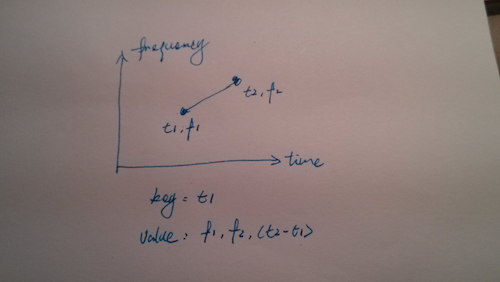 frequency
t2, f2
t1, f1
time
key = t1
value: f1, f2, (t2-t1)